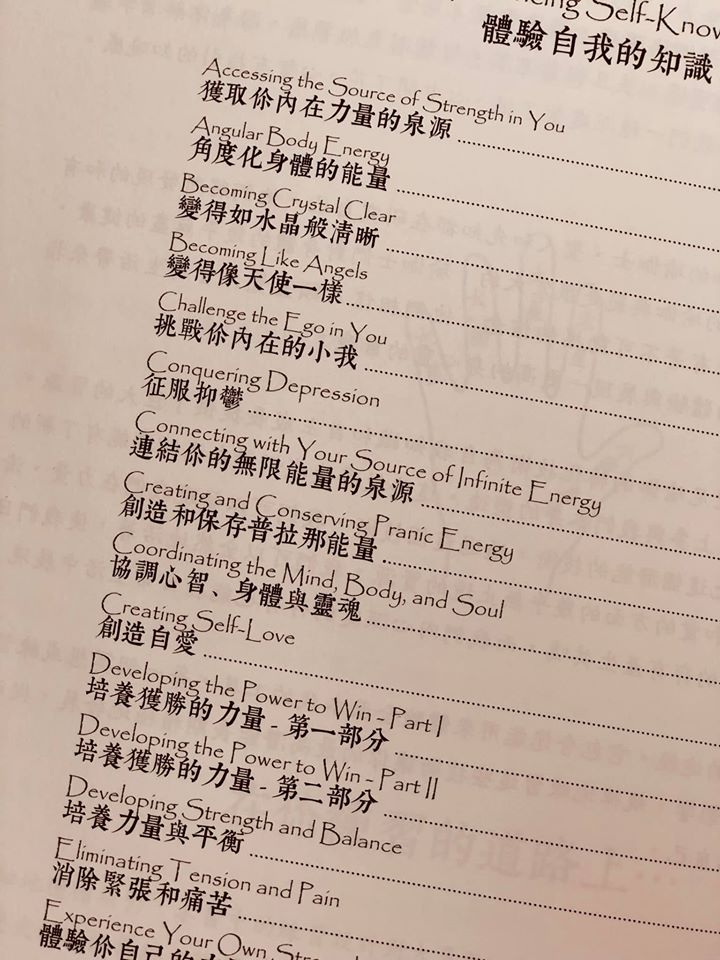 Self-Know
體驗自我的知識
Accessing the Source of Strength in You
獲取你內在力量的泉源
Angular Body Energy
角度化身體的能量
Becoming Crystal Clear
變得如水晶般清晰
Becoming Like Angels
變得像天使一樣
Challenge the Ego in You
挑戰你內在的小我
Conquering Depression
征服抑鬱
Connecting with Your Source of Infinite Energy
連結你的無限能量的泉源
Creating and Conserving Pranic Energy
創造和保存普拉那能量
Coordinating the Mind, Body, and Soul
協調心智、身體與靈魂
Creating Self-Love
創造自愛
Developing the Power to Win - Part I
培養獲勝的力量 - 第一部分
Developing the Power to Win - Part II
培養獲勝的力量 - 第二部分
Developing Strength and Balance
培養力量與平衡
Eliminating Tension and Pain
消除緊張和痛苦
Experience Your Own
體驗你自己的